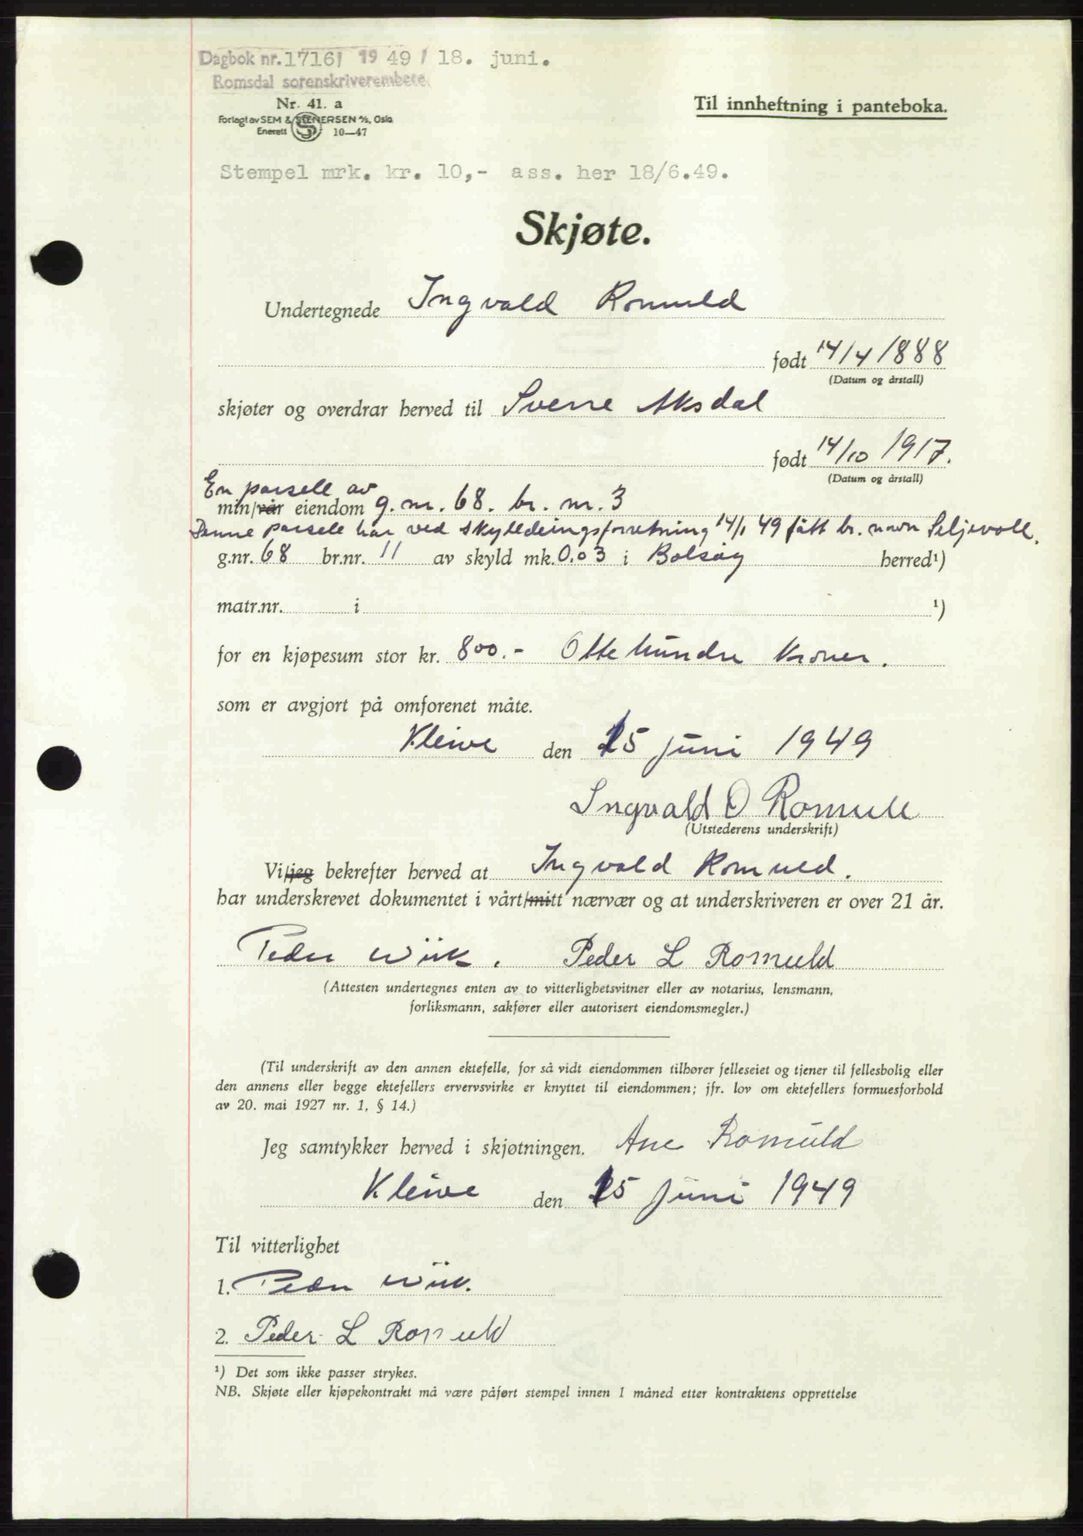 Dagbok nr. 1716/ 1949 / 18. juni.
Romsdal sorenskriverembete
Nr. 41. a
Til innheftning i panteboka.
Forlagt av SEM & STENERSEN A/S, Oslo
Enerett 10—47
Stempel mrk. kr. 10,- ass. her 18/6.49.
Skjøte.
Undertegnede Ingvald Romuld
født 14/4 1888
(Datum og årstall)
skjøter og overdrar herved til Sverre Aksdal
født 14/10 1917.
(Datum og årstall)
En parsell av
min/vår eiendom g.nr. 68. br. nr. 3
Denne parsele har ved skylddeingsforretning 14/1 49 fått br. navn Seljevoll.
g.nr. 68 br.nr. 11 av skyld mk. 0.03 i Bolsøy herred¹)
matr.nr. i ¹)
for en kjøpesum stor kr. 800.- Otte hundre kroner.
som er avgjort på omforenet måte.
Kleive den 15 juni 1949
Ingvald O Romuld
(Utstederens underskrift)
Vi/jeg bekrefter herved at Ingvald Romuld.
har underskrevet dokumentet i vårt/mitt nærvær og at underskriveren er over 21 år.
Peder Wiik. Peder L Romuld
(Attesten undertegnes enten av to vitterlighetsvitner eller av notarius, lensmann,
forliksmann, sakfører eller autorisert eiendomsmegler.)
(Til underskrift av den annen ektefelle, for så vidt eiendommen tilhører felleseiet og tjener til fellesbolig eller
den annens eller begge ektefellers ervervsvirke er knyttet til eiendommen; jfr. lov om ektefellers formuesforhold
av 20. mai 1927 nr. 1, § 14.)
Jeg samtykker herved i skjøtningen. Ane Romuld
Kleive den 15 juni 1949
Til vitterlighet
1. Peder Wiik.
2. Peder L Romuld
¹) Det som ikke passer strykes.
NB. Skjøte eller kjøpekontrakt må være påført stempel innen 1 måned etter kontraktens opprettelse